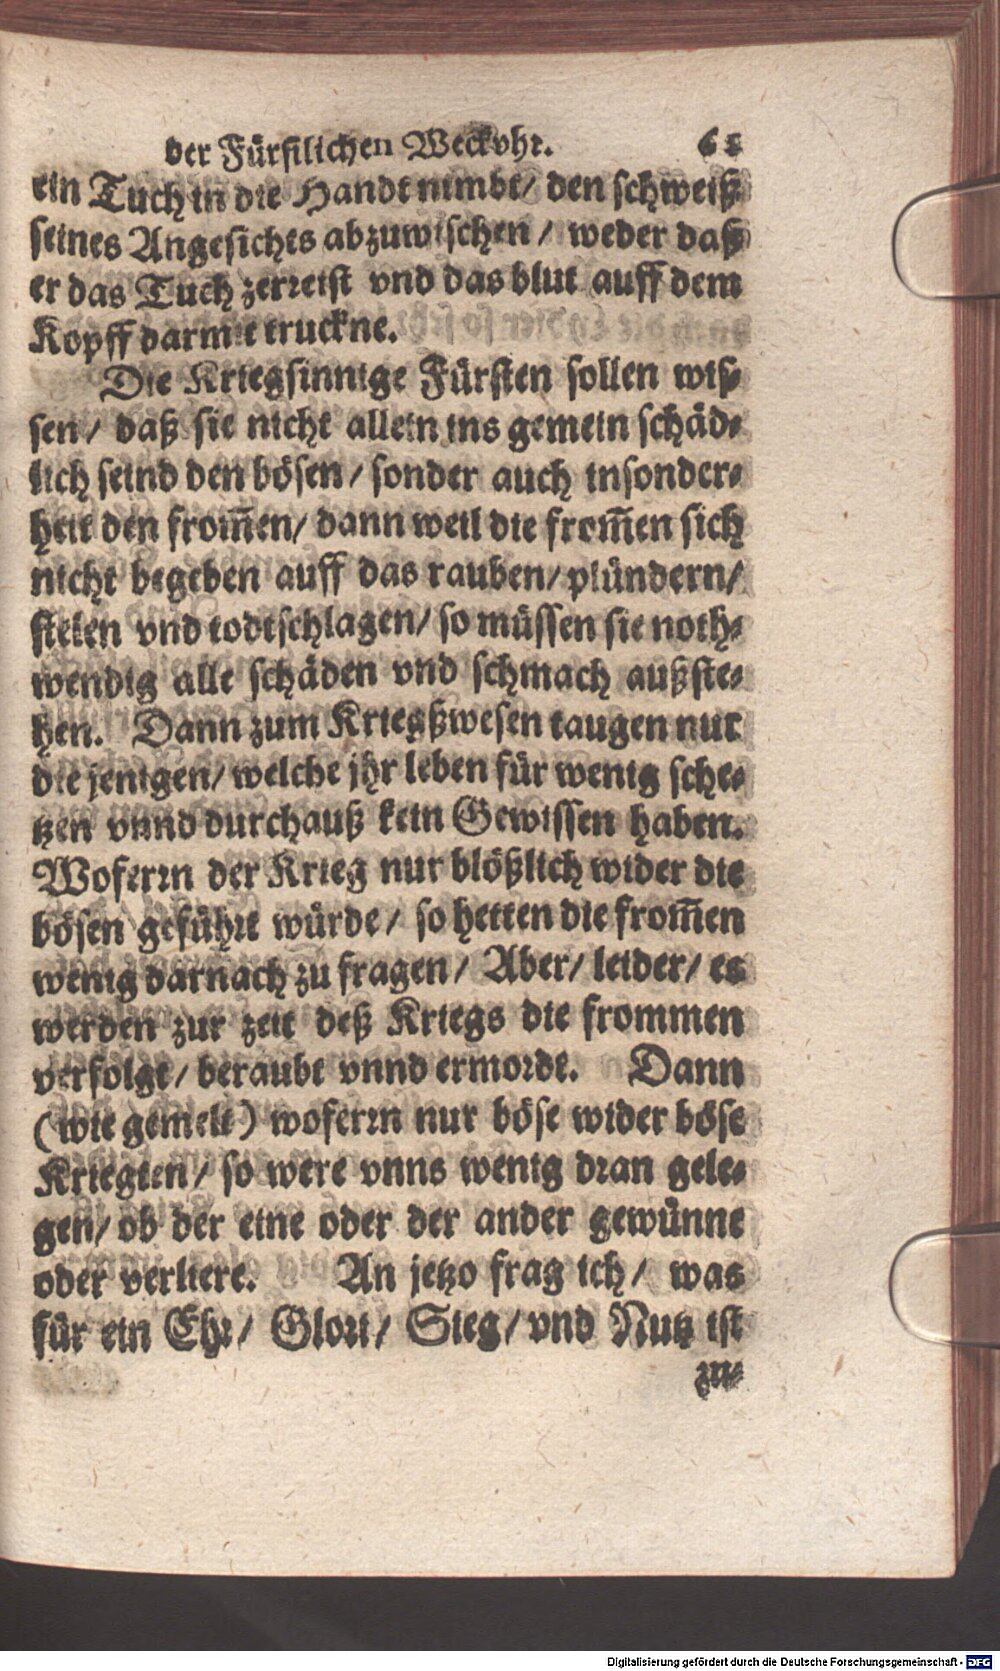 der Fürstlichen Weckvhr. 65
ein Tuch in die Handt nimbt/ den schweiß
seines Angesichts abzuwischen / weder daß
er das Tuch zerreist vnd das blut auff dem
Kopff darmit truckne.
Die Kriegsinnige Fürsten sollen wis⸗
sen / daß sie nicht allein ins gemein schäd⸗
lich seind den bösen / sonder auch insonder⸗
heit den from̃en/ dann weil die from̃en sich
nicht begeben auff das rauben/ plündern/
stelen vnd todtschlagen/ so müssen sie noth⸗
wendig alle schäden vnd schmach außste⸗
hen. Dann zum Kriegßwesen taugen nur
die jenigen/ welche jhr leben für wenig sche⸗
tzen vnnd durchauß kein Gewissen haben.
Woferrn der Krieg nur blößlich wider die
bösen geführt würde / so hetten die from̃en
wenig darnach zu fragen / Aber/ leider/ es
werden zur zeit deß Kriegs die frommen
verfolgt / beraubt vnnd ermordt. Dann
(wie gemelt) woferrn nur böse wider böse
Kriegten / so were vnns wenig dran gele⸗
gen/ ob der eine oder der ander gewünne
oder verliere. An jetzo frag ich / was
für ein Ehr/ Glori/ Sieg / vnd Nutz ist
Digitalisierung gefördert durch die Deutsche Forschungsgemeinschaft - DFG